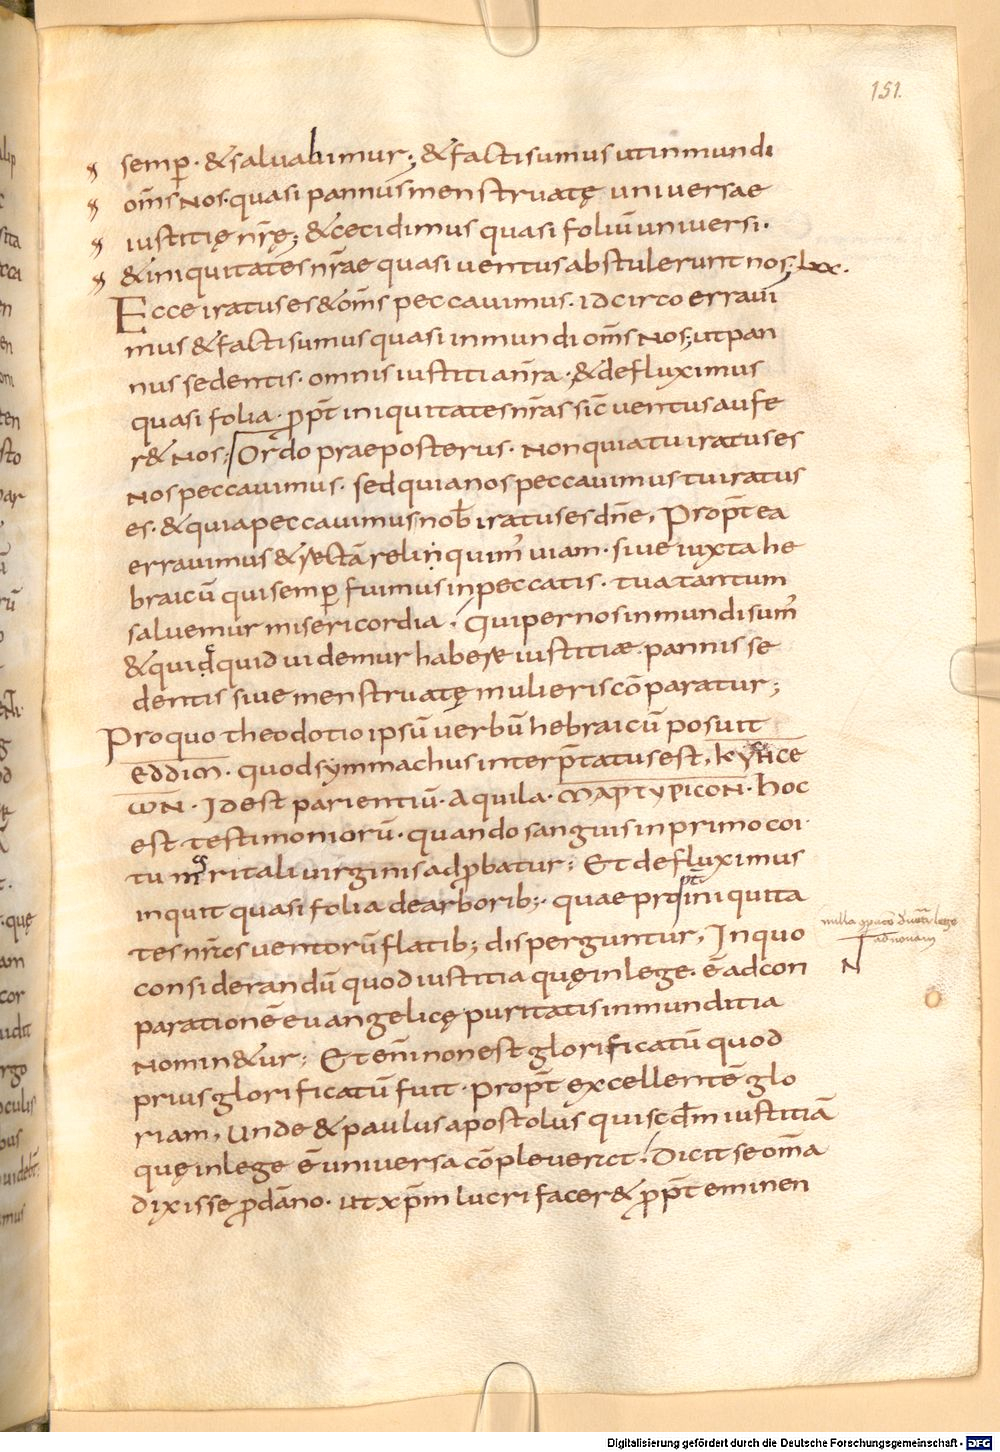 151.
semp̄. & saluabimur; & facti sumus ut inmundi
om̄s nos. quasi pannus menstruatę uniuersae
iustitię nr̄ę; & cecidimus quasi foliū uniuersi.
& iniquitates nr̄ae quasi uentus abstulerunt nos; lxx.
Ecce iratus es & om̄s peccauimus. idcirco erraui
mus & facti sumus quasi inmundi om̄s nos; ut pan
nus sedentis. omnis iustitia nr̄a. & defluximus
quasi folia. ꝓpt̄ iniquitates nr̄as sic̄ uentus aufe
r& nos; Ordo praeposterus. non quia tu iratus es
nos peccauimus. sed quia nos peccauimus tu iratus
es. & quia peccauimus nob̄ iratus es dn̄e, Propt̄ea
errauimus & rectā relinquim᾽ uiam. siue iuxta he
braicū qui semp̄ fuimus in peccatis. tua tantum
saluemur misericordia. Qui per nos inmundi sum᾽
& quidquid uidemur habere iustitiæ. pannis se
dentis siue menstruatę mulieris cōparatur;
Pro quo theodotio ipsū uerbū hebraicū posuit
eddim. quod symmachus interp̄tatus est, kyhce
ωN. Id est parientiū. Aquila. MAPTYPICON. hoc
est testimoniorū. quando sanguis in primo coi
tu maritali uirginis adꝓbatur; Et defluximus
inquit quasi folia de arborib;. quae ꝓpt̄ iniquita
tes nr̄as uentorū flatib; disperguntur, In quo
considerandū quod iustitia quę in lege. ē ad con
parationē euangelicę puritatis inmunditia
nomin&ur; Et eni̅ non est glorificatū quod
prius glorificatū fuit. propt̄ excellentē glo
riam, Unde & paulus apostolus qui scd̄m iustitiā
quę in lege ē uniuersa cōpleuerat. Dicit se om̄a
dixisse ꝓ dāno. ut xp̄m lucrifacer& ꝓpt̄ eminen
N
Digitalisierung gefördert durch die Deutsche Forschungsgemeinschaft - DFG